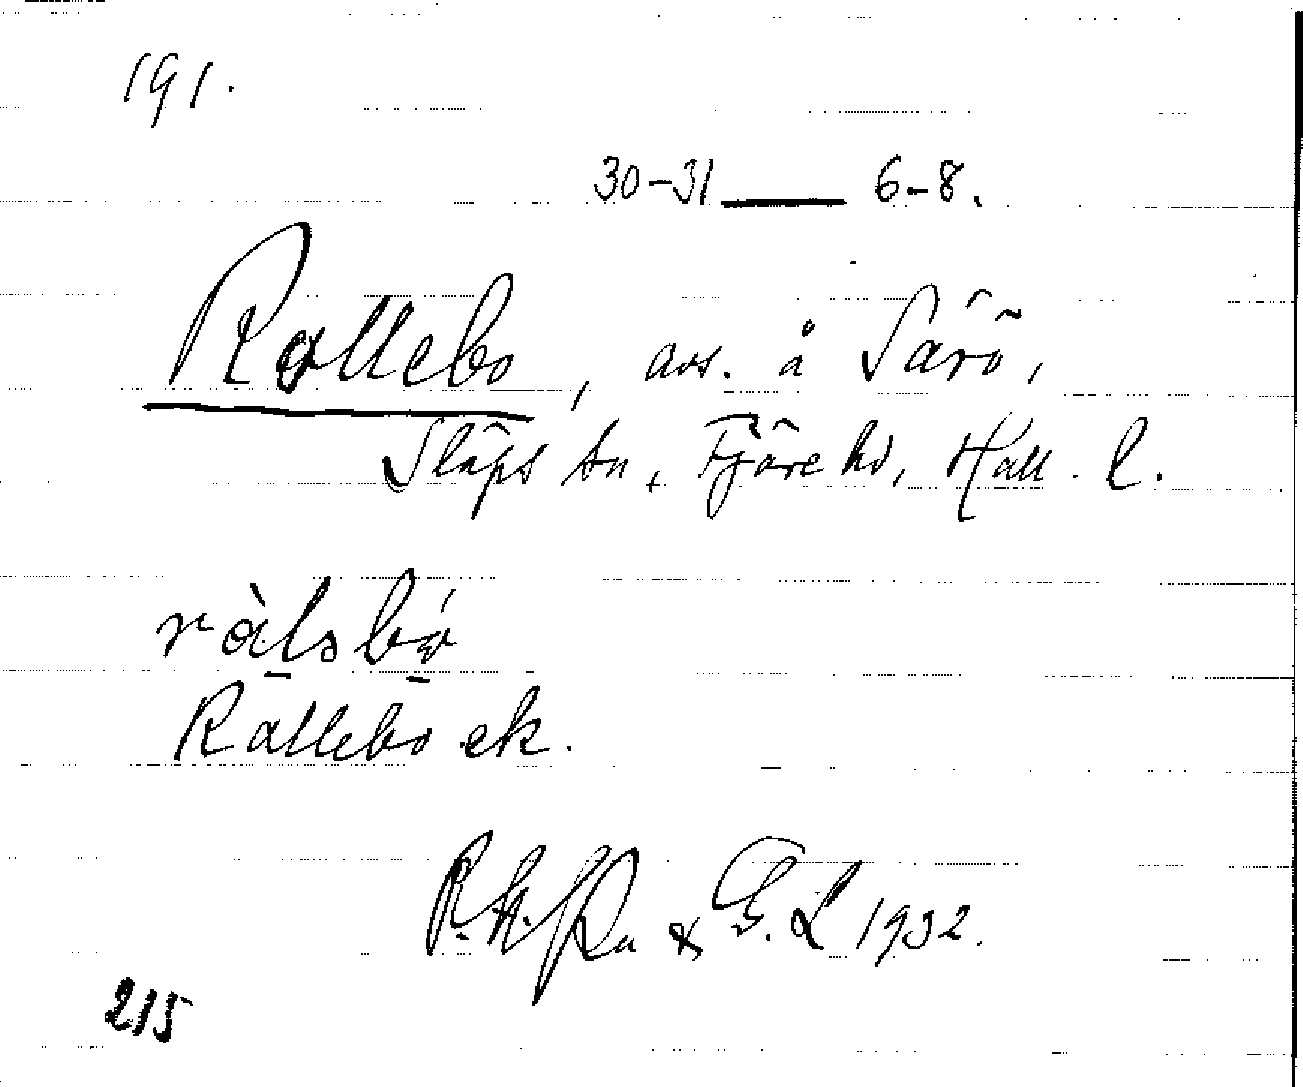 191.
30-31 — 6-8.
Rallebo, avs. å Särö,
Släps sn, Fjäre hd, Hall. l.
Rallebo ek.
& G. L 1932.
215